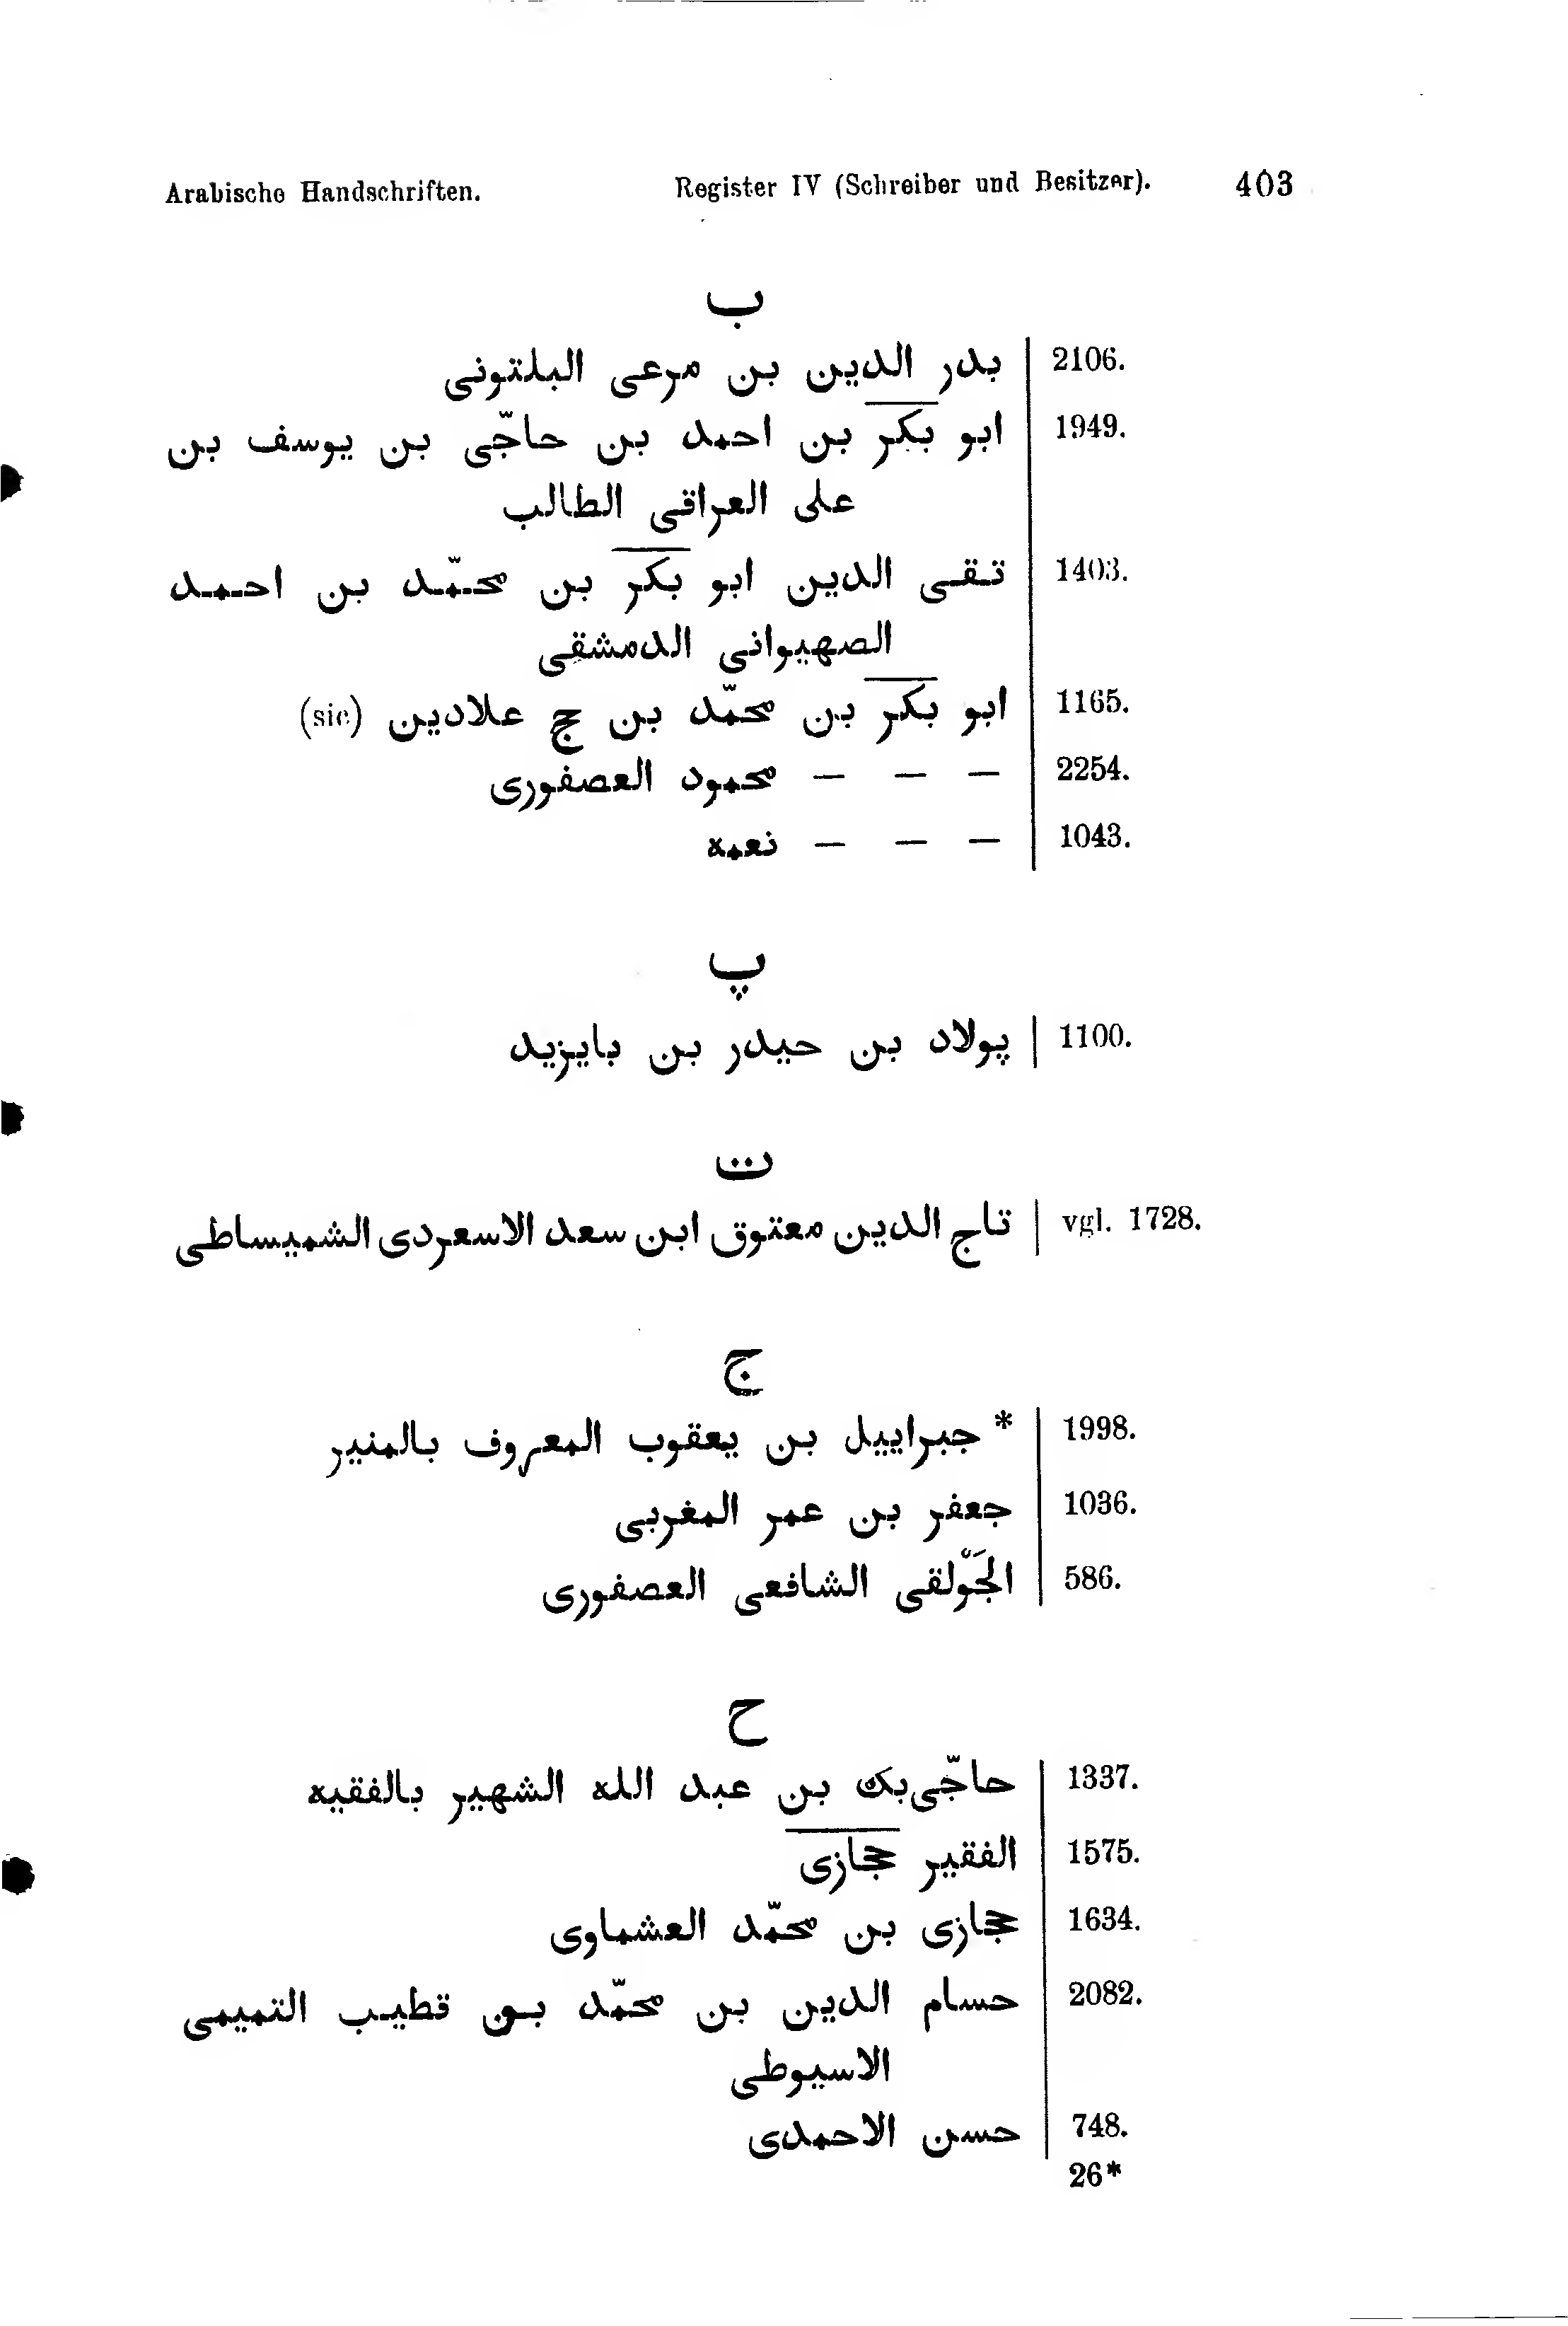 Arabische Handschriften. Register IV (Schreiber und Besitzer). 403
ب
بدر الدين بن مرعى البلتونى 2106.
ابو بكر بن احمد بن حاجّى بن يوسف بن 1949.
على العراقى الطالب
تقى الدين ابو بكر بن محمّد بن احمد 1403.
الصهيوانى الدمشقى
ابو بكر بن محمّد بن حج علادين (sic) 1165.
— — — محمود العصفورى 2254.
— — — نعمه 1043.
پ
پولاد بن حيدر بن بايزيد 1100.
ت
تاج الدين معتوق ابن سعد الاسعردى الشميساطى vgl. 1728.
ج
* جبراييل بن يعقوب المعروف بالمنير 1998.
جعفر بن عمر المغربى 1036.
الجَوْلقى الشافعى العصفورى 586.
ح
حاجّى بك بن عبد الله الشهير بالفقيه 1337.
الفقير حجازى 1575.
حجازى بن محمّد العشماوى 1634.
حسام الدين بن محمّد بن قطيب التميمى 2082.
الاسيوطى
حسن الاحمدى 748.
26*